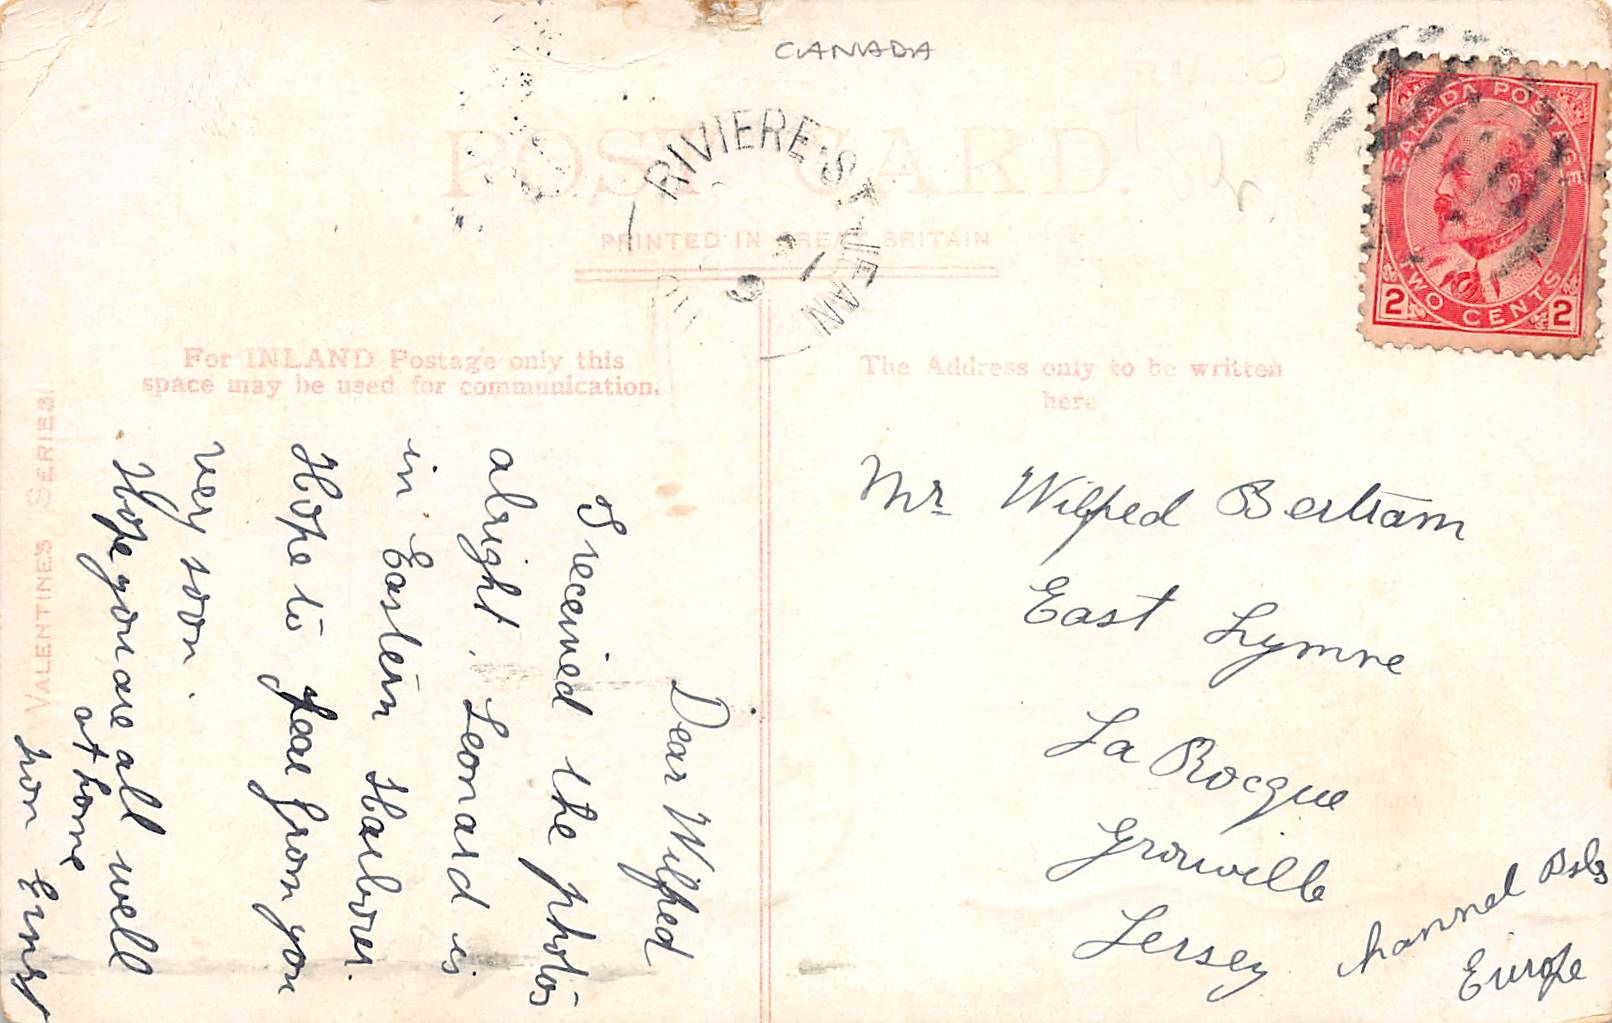 CANADA
POST CARD.
RIVIERE-ST JEAN
PRINTED IN GREAT BRITAIN
CANADA POSTAGE
2 TWO CENTS 2
For INLAND Postage only this
space may be used for communication.
The Address only to be written
here
VALENTINES SERIES.
Dear Wilfred
I received the photos
alright. Leonard is
in Eastern Harbour.
Hope to hear from you
very soon.
Hope you are all well
at home
from
Mr Wilfred Bertram
East Lymne
La Rocque
Grouville
Jersey
Channel Isls
Europe